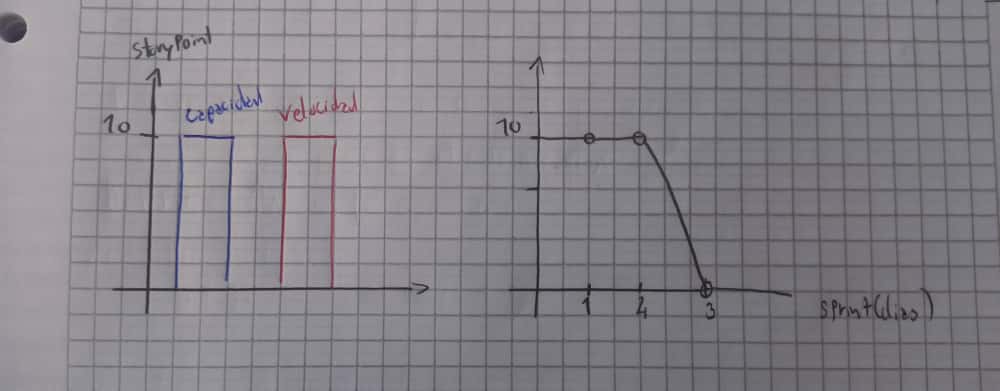 StoryPoint
capacidad
velocidad
10
10
1
2
3
sprint(dias)